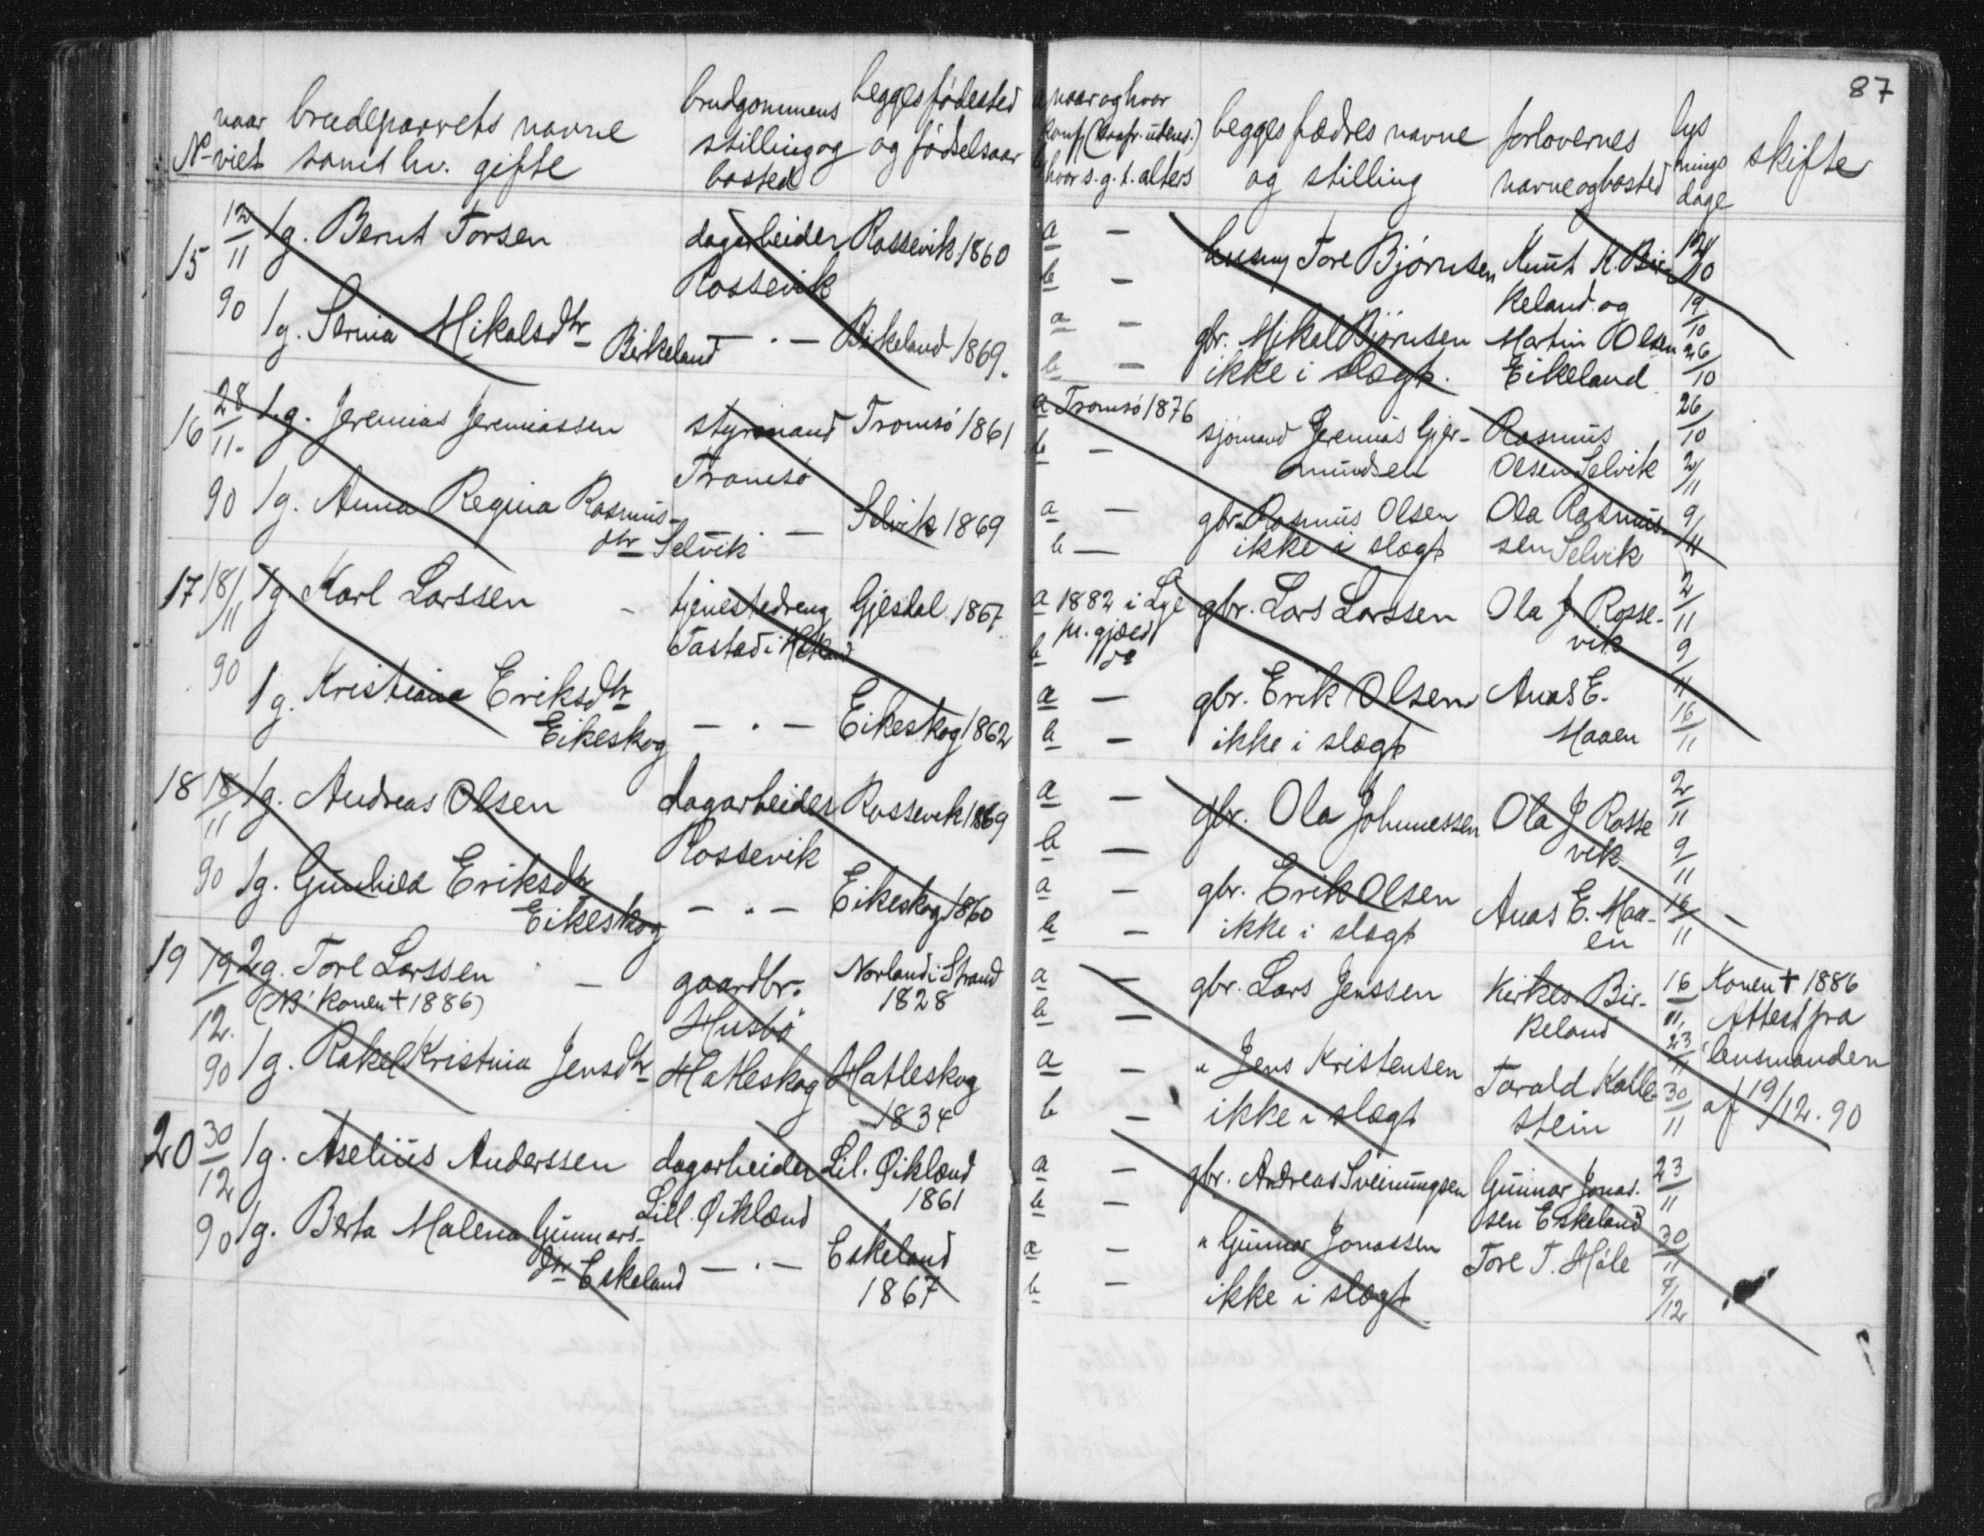 87
No naar viet
brudeparrets navne
samt hv. gifte
brudgommens
stilling og
bosted
begges fødested
og fødselsaar
a naar og hvor
konf. (koafr. utens.)
b hvor s. g. t. alters
begges fædres navne
og stilling
forlovernes
navne og bosted
lys
nings
dage
skifte
15 12/11 90
1g. Bernt Torsen
dagarbeider
Rossevik
Rossevik 1860
a —
b —
husm Tore Bjørnsen
Knut K. Bir-
keland og
12/10
19/10
26/10
1g. Serina Mikalsdtr
Birkeland
— . —
Birkeland 1869.
a —
b —
gbr. Mikal Bjørnsen
ikke i slægt.
Martin Olsen
Eikeland
16 28/11. 90
1.g. Jeremias Jeremiassen
styrmand
Tromsö
Tromsö 1861
a Tromsö 1876
b —
sjömand Jeremias Gjer-
mundsen
Rasmus
Olsen Selvik
26/10
2/11
9/11
1g. Anna Regina Rasmus-
dtr Selvik
— . —
Selvik 1869
a —
b —
gbr. Rasmus Olsen
ikke i slægt
Ola Rasmus-
sen Selvik
17 18/11 90
1g Karl Larssen
tjenestedreng
Tastad i Hetland
Gjesdal 1867
a 1882 i Lye
m. gjæsd
b do
gbr. Lars Larssen
Ola J. Rosse-
vik
2/11
9/11
16/11
1g. Kristiana Eriksdtr
Eikeskog
— . —
Eikeskog 1862
a —
b —
gbr. Erik Olsen
ikke i slægt
Anas E.
Maaen
18 18/11 90
1g. Andreas Olsen
dagarbeider
Rossevik
Rossevik 1869
a —
b —
gbr. Ola Johannessen
Ola J Rosse
vik
2/11
9/11
16/11
—
1g. Gunhild Eriksdtr
Eikeskog
— . —
Eikeskog 1860
a —
b —
gbr. Erik Olsen
ikke i slægt
Anas E. Maa-
en
19 19/12. 90
2g. Tore Larssen
(NB Konen + 1886)
gaardbr.
Husbö
Norland i Strand
1828
a —
b —
gbr. Lars Jenssen
Kirkes. Bir-
keland
16/11.
23/11
30/11
Konen + 1886
Attest fra
lensmanden
af 19/12. 90
1g. Rakel Kristina Jensdtr
Hatleskog
Hatleskog
1834
a —
b —
" Jens Kristensen
ikke i slægt
Tarald Kalle-
stein
20 30/12 90
1g. Aselius Anderssen
dagarbeider
Lill. Øikland
Lil. Øikland
1861
a —
b —
gbr. Andreas Sveinungsen
Gunnar Jonas-
sen Eskeland
23/11
30/11
7/12
1g. Berta Malena Gunnars-
dtr Eskeland
— . —
Eskeland
1867
a —
b —
" Gunnar Jonassen
ikke i slægt
Tore T. Høle